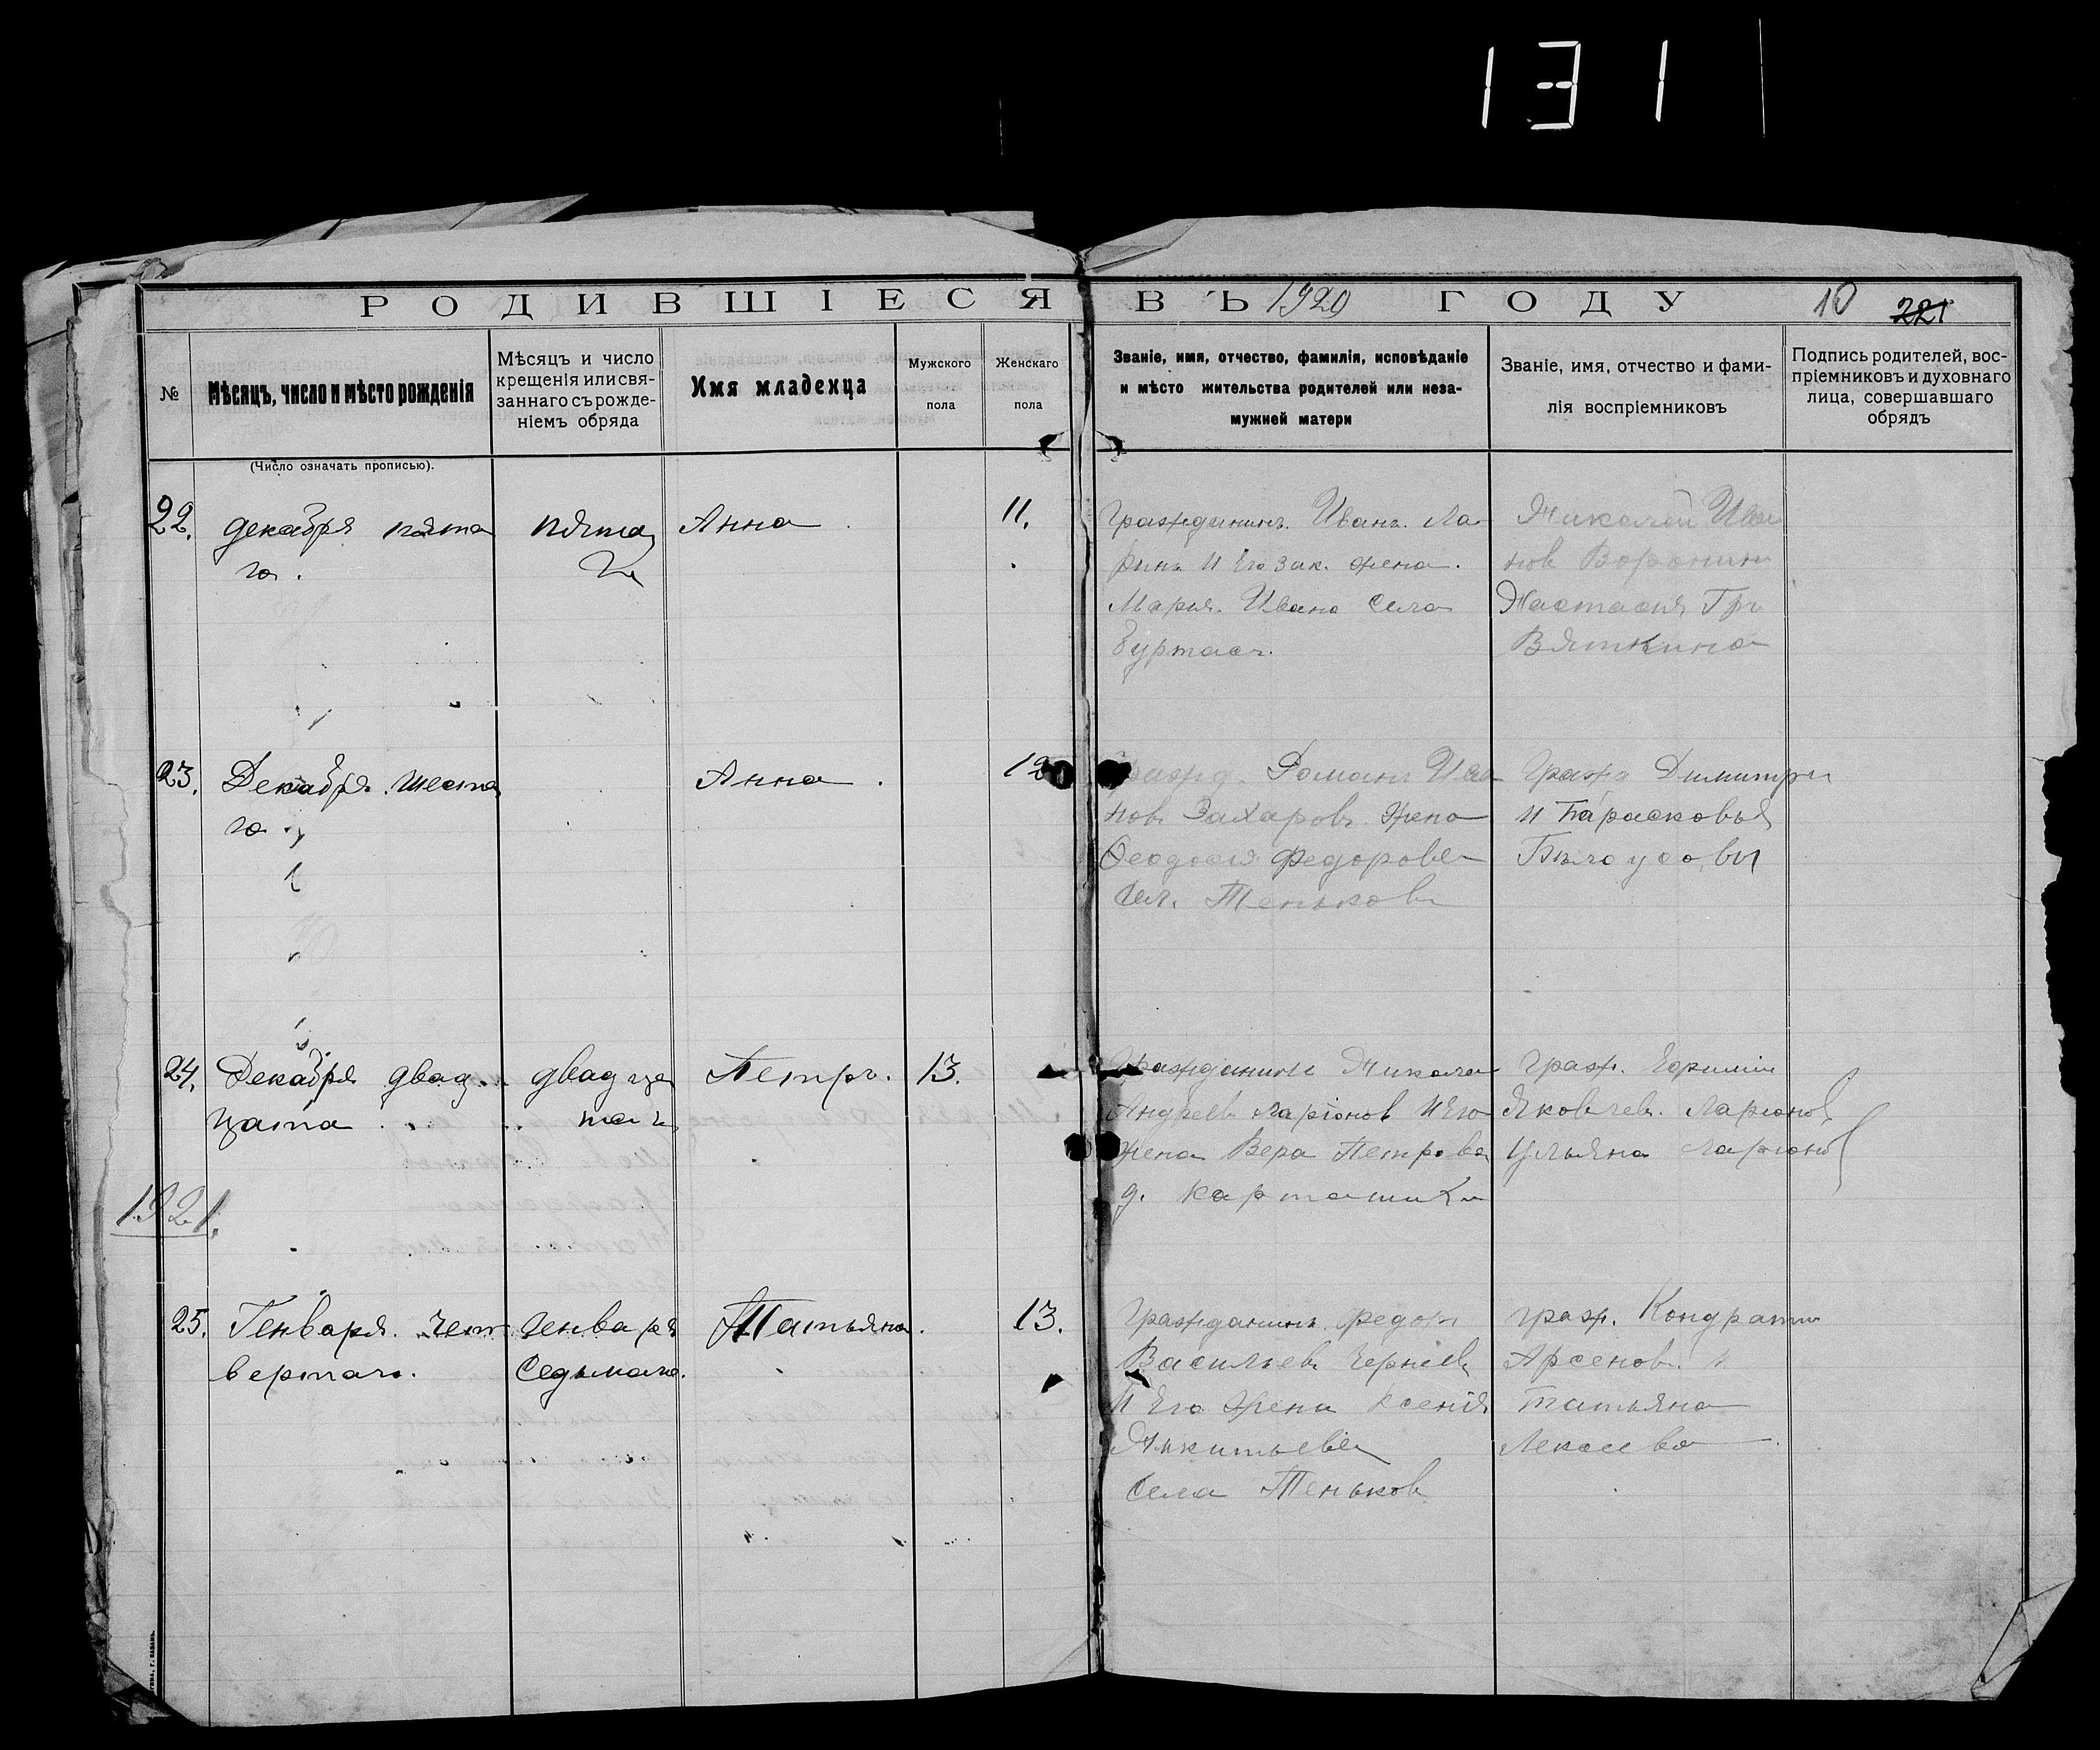 131
РОДИВШІЕСЯ ВЪ 1920 ГОДУ 10 221
№
Мѣсяцъ, число и мѣсто рожденія
Мѣсяцъ и число
крещенія или свя-
заннаго съ рожде-
ніемъ обряда
Имя младенца
Мужского
пола
Женскаго
пола
Званіе, имя, отчество, фамилія, исповѣданіе
и мѣсто жительства родителей или неза-
мужней матери
Званіе, имя, отчество и фами-
лія воспріемниковъ
Подпись родителей, вос-
пріемниковъ и духовнаго
лица, совершавшаго
обрядъ
(Число означать прописью).
22.
декабря пята
го.
пята
го
Анна
11.
Гражданинъ Иванъ Ла
ринъ и Его зак. жена.
Мария Ивано Села
Буртасъ.
Николай Ива
нов Воронин
Настасия Гри
Вяткина
23.
Декабря шеста
го
Анна
12
гражд. Романъ Ива
новъ Захаровъ жена
Феодосия Федоровн
Сел. Теньковъ
Гражд Димитри
и Парасковья
Бѣлоусовы
24.
Декабря двад
цата
двадца
таг
Петръ.
13.
Гражданинъ Никола
Андреевъ Ларіонов и Его
жена Вера Петрова
д. Карташихи
Граж. Ефимій
Яковлев. Ларіонов
Ульяна Ларіонов
1921.
25.
Генваря. чет
вертаго.
Генваря
Седьмаго.
Татьяна.
13.
Гражданинъ Федоръ
Васильевъ Черніевъ
и Его жена Ксенія
Никитьевн
Села Теньков
Граж. Кондратий
Арсенов. и
Татьяна
Лексева